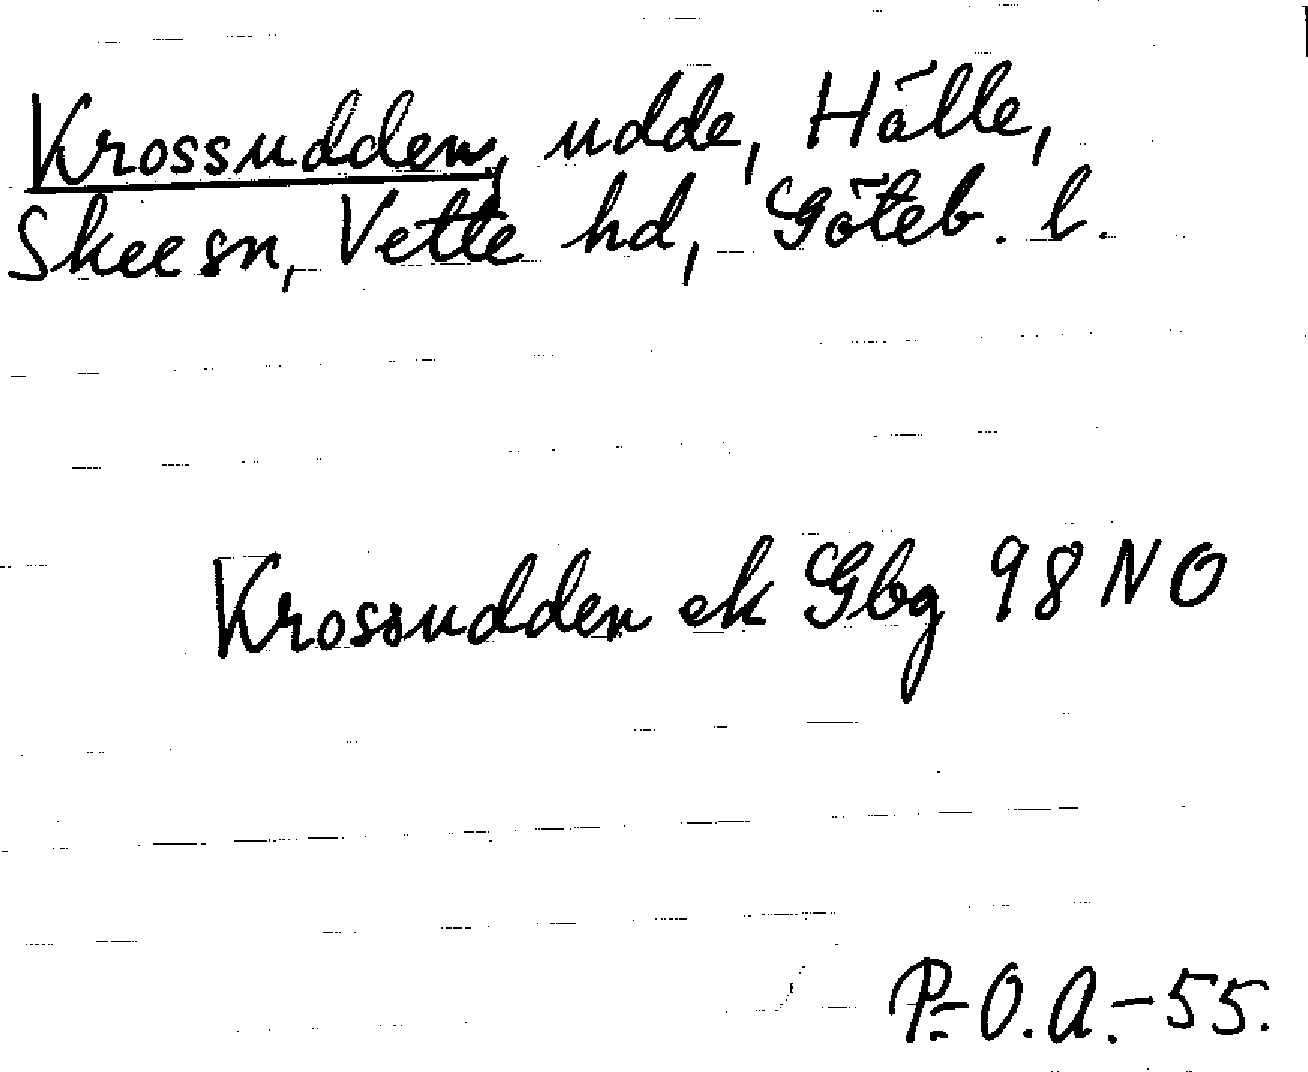 Krossudden, udde, Hälle,
Skee sn, Vette hd, Göteb. l.
Krossudden ek Gbg 98 NO
P.-O. A.-55.